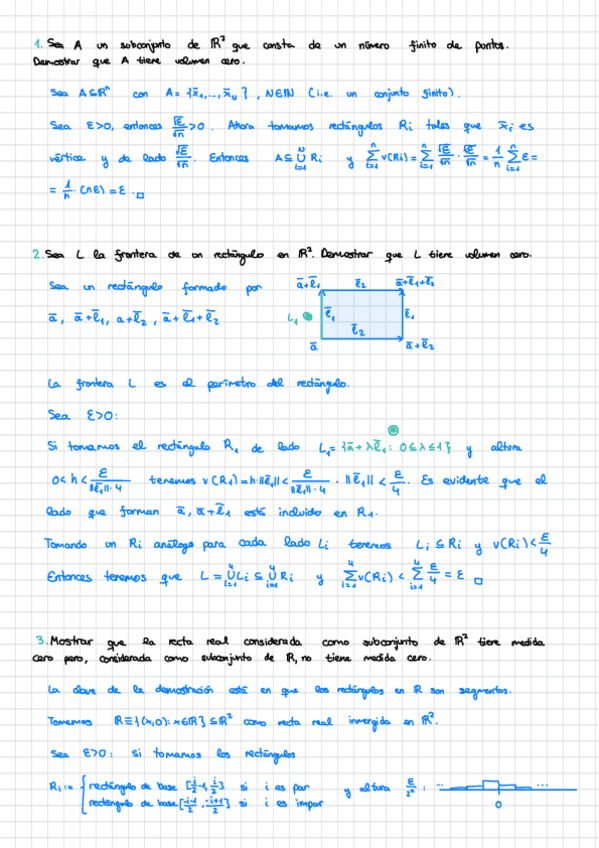 1. Sea A un subconjunto de ℝ² que consta de un número finito de puntos.
Demostrar que A tiene volumen cero.
Sea A⊆ℝⁿ con A = {x̄₁,...,x̄ₙ}, N∈ℕ (i.e. un conjunto finito).
Sea ε>0, entonces √ε/√n >0. Ahora tomamos rectángulos Ri tales que x̄i es
vértice y de lado √ε/√n. Entonces A⊆ ∪ᵢ₌₁ᴺ Ri y Σᵢ₌₁ⁿ v(Ri) = Σᵢ₌₁ⁿ √ε/√n · √ε/√n = 1/n Σᵢ₌₁ⁿ ε =
= 1/n · (nε) = ε. □
2. Sea L la frontera de un rectángulo en ℝ². Demostrar que L tiene volumen cero.
Sea un rectángulo formado por
ā, ā+ℓ̄₁, a+ℓ̄₂, ā+ℓ̄₁+ℓ̄₂
ā+ℓ̄₁ ℓ̄₂ ā+ℓ̄₁+ℓ̄₂
L₁ ⊛ ℓ̄₁ ℓ̄₂ ℓ̄₁
ā ā+ℓ̄₂
La frontera L es el perímetro del rectángulo.
Sea ε>0:
⊛
Si tomamos el rectángulo R₁ de lado L₁= {ā+λℓ̄₁ : 0≤λ≤1} y altura
0<h< ε/(‖ℓ̄₁‖·4) tenemos v(R₁)=h·‖ℓ̄₁‖< ε/(‖ℓ̄₁‖·4) · ‖ℓ̄₁‖ < ε/4. Es evidente que el
lado que forman ā, ā+ℓ̄₁ está incluido en R₁.
Tomando un Ri análogo para cada lado Li tenemos Li ⊆ Ri y v(Ri)< ε/4
Entonces tenemos que L = ∪ᵢ₌₁⁴ Li ⊆ ∪ᵢ₌₁⁴ Ri y Σᵢ₌₁⁴ v(Ri) < Σᵢ₌₁⁴ ε/4 = ε □
3. Mostrar que la recta real considerada como subconjunto de ℝ² tiene medida
cero pero, considerada como subconjunto de ℝ, no tiene medida cero.
La clave de la demostración está en que los rectángulos en ℝ son segmentos.
Tomemos ℝ≡{(x,0): x∈ℝ} ⊆ℝ² como recta real inmergida en ℝ².
Sea ε>0: si tomamos los rectángulos
Ri := { rectángulo de base [i/2-1, i/2] si i es par y altura ε/2ⁿ : ... ... 0
rectángulo de base [-i-1/2, -i+1/2] si i es impar